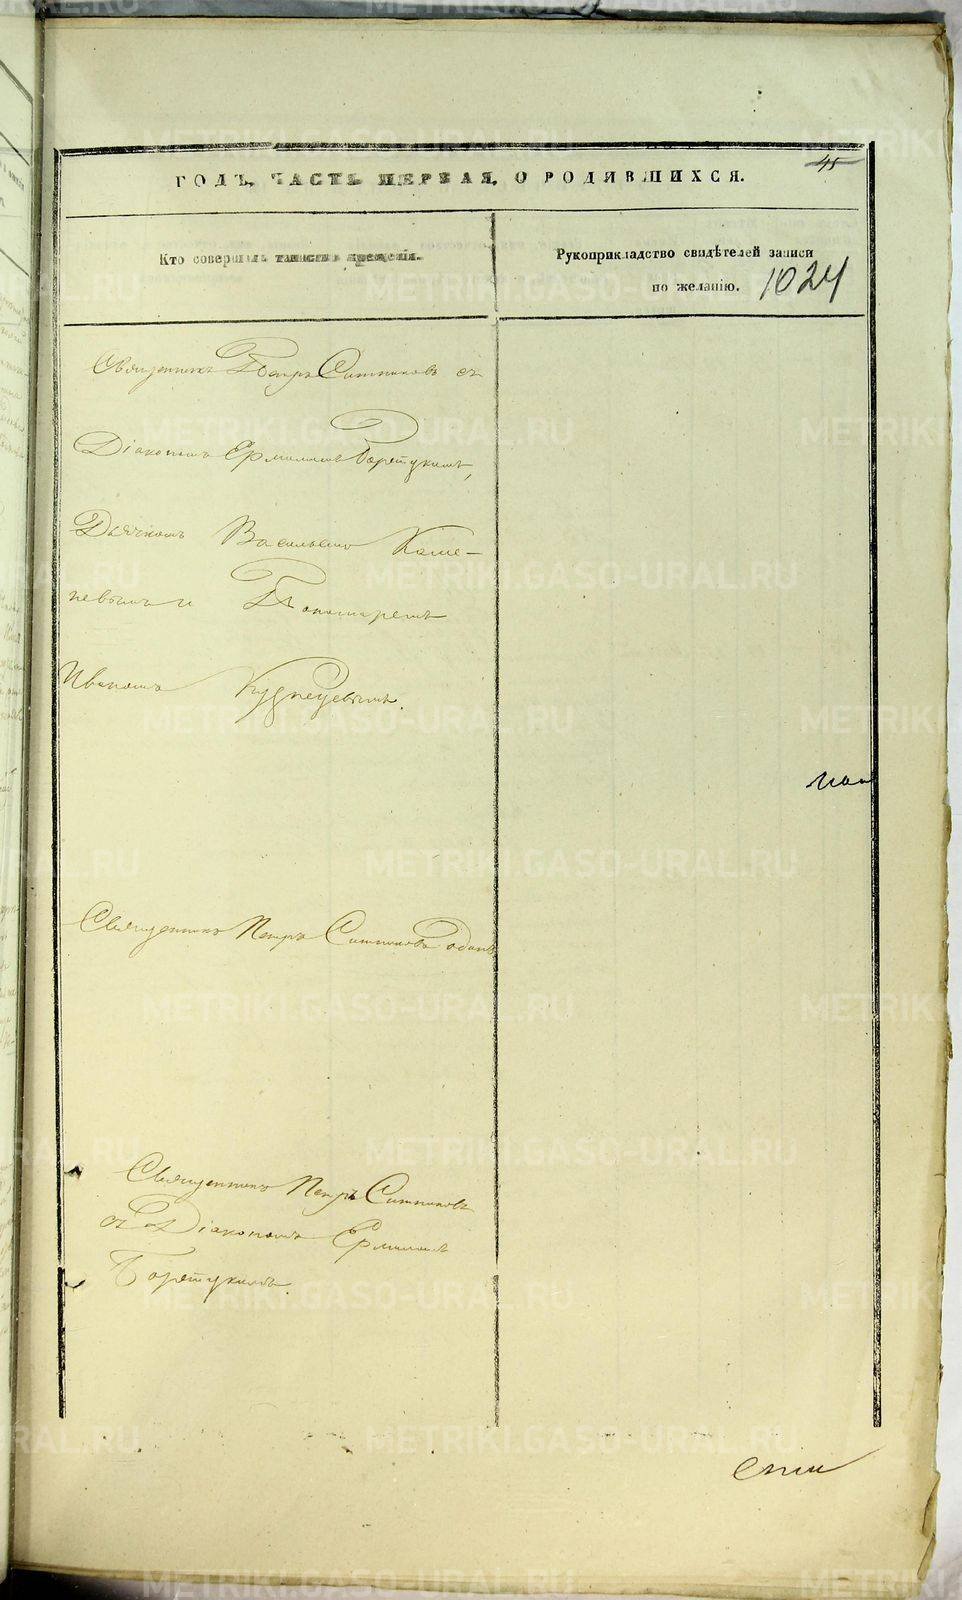 45
ГОДЪ, ЧАСТЬ ПЕРВАЯ, О РОДИВШИХСЯ.
Кто совершалъ таинство крещенія.
Рукоприкладство свидѣтелей записи
по желанію. 1024
Священникъ Петръ Ситниковъ съ
Діакономъ Ермиломъ
Дьячкомъ Васильемъ Каме-
невымъ и Пономаремъ
Иваномъ Кузнецовымъ.
Священникъ Петръ Ситниковъ одинъ
Священникъ Петръ Ситниковъ
съ Діакономъ Ермиломъ
METRIKI.GASO-URAL.RU